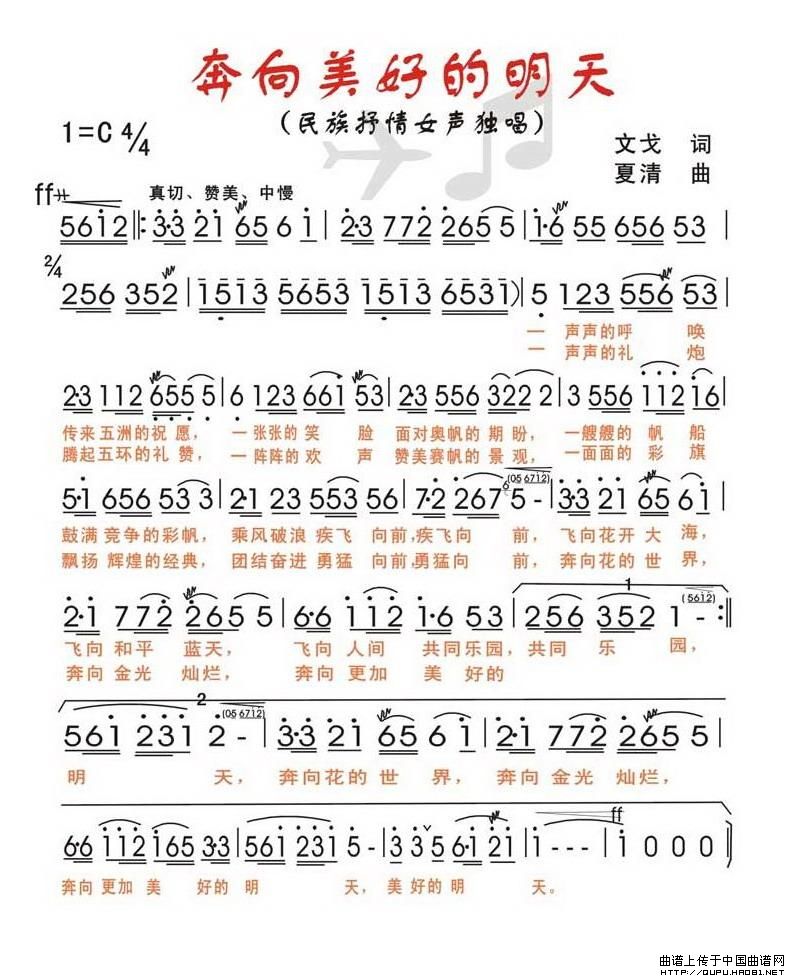 奔向美好的明天
(民族抒情女声独唱)
1=C 4/4
文戈 词
夏清 曲
ff 真切、赞美、中慢
5612 ‖: 3·3 21 65 6 1 | 2·3 772 265 5 | 1·6 55 656 53 |
2/4
256 352 | 1513 5653 1513 6531) | 5 123 556 53 |
一 声声的呼 唤
一 声声的礼 炮
2·3 112 655 5 | 6 123 661 53 | 2·3 556 322 2 | 3 556 112 16 |
传来 五洲的祝 愿， 一张张的 笑 脸 面对奥帆的 期 盼， 一艘艘的 帆 船
腾起 五环的礼 赞， 一阵阵的 欢 声 赞美赛帆的 景 观， 一面面的 彩 旗
(05 6712)
5·1 656 53 3 | 2·1 23 553 56 | 7·2 2676 5 - | 3·3 21 65 6 1 |
鼓满 竞争的彩帆， 乘风破浪 疾飞 向前,疾飞向 前， 飞向花开 大 海，
飘扬 辉煌的经典， 团结奋进 勇猛 向前,勇猛向 前， 奔向花的 世 界，
1 (5612)
2·1 772 265 5 | 6·6 112 1·6 53 | 256 352 1 - :‖
飞向 和平 蓝天， 飞向 人间 共同乐园，共同 乐 园，
奔向 金光 灿烂， 奔向 更加 美 好的
2 (05 6712)
561 231 2 - | 3·3 21 65 6 1 | 2·1 772 265 5 |
明 天， 奔向花的 世 界， 奔向 金光 灿烂，
ff
6·6 112 165 3·3 | 561 231 5 - | 3 3 5 6·1 21 | 1 - - - | 1 0 0 0 |
奔向 更加 美 好的 明 天，美 好的 明 天。
曲谱上传于中国曲谱网
HTTP://QUPU.HAO81.NET